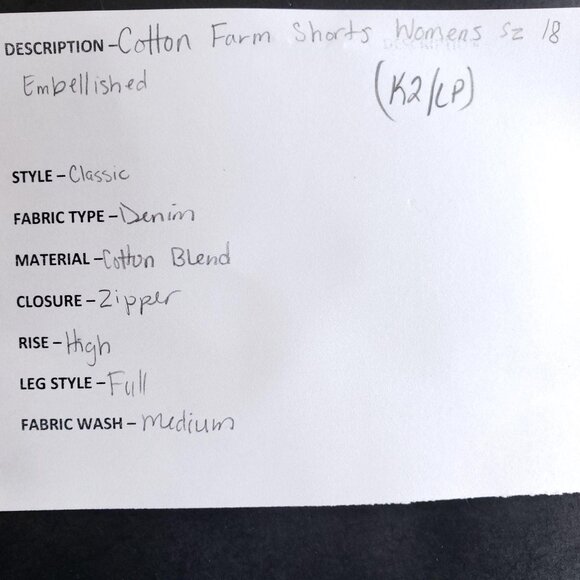 DESCRIPTION - Cotton Farm Shorts Womens sz 18
Embellished
(K2/LP)
STYLE - Classic
FABRIC TYPE - Denim
MATERIAL - Cotton Blend
CLOSURE - Zipper
RISE - High
LEG STYLE - Full
FABRIC WASH - Medium